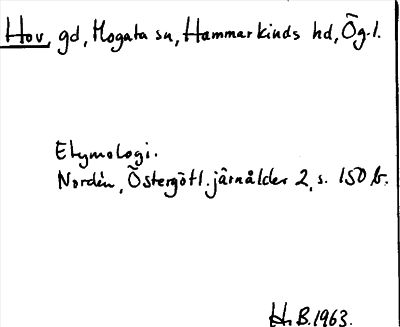 Hov, gd, Mogata sn, Hammarkinds hd, Ög.l.
Etymologi.
Nordén, Östergötl. järnålder 2, s. 150 b.
H. B. 1963.